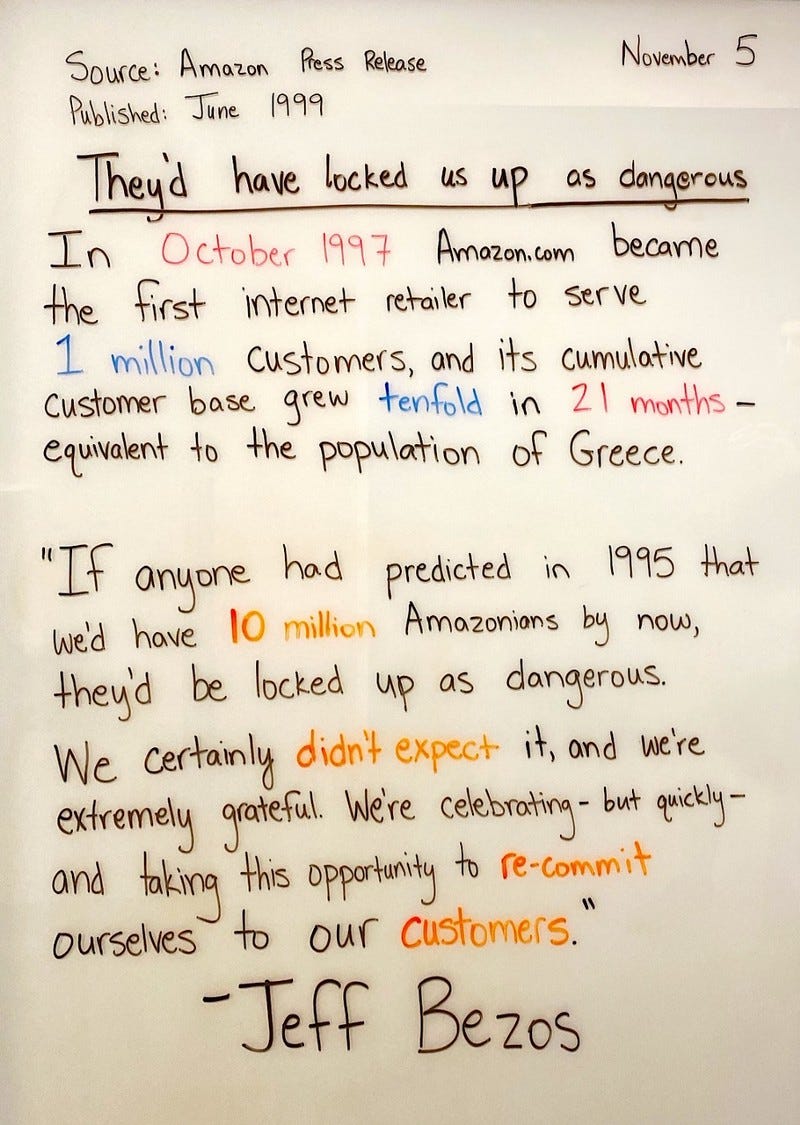 Source: Amazon Press Release
November 5
Published: June 1999
They'd have locked us up as dangerous
In October 1997 Amazon.com became
the first internet retailer to serve
1 million customers, and its cumulative
customer base grew tenfold in 21 months -
equivalent to the population of Greece.
"If anyone had predicted in 1995 that
we'd have 10 million Amazonians by now,
they'd be locked up as dangerous.
We certainly didn't expect it, and we're
extremely grateful. We're celebrating - but quickly -
and taking this opportunity to re-commit
ourselves to our customers."
- Jeff Bezos